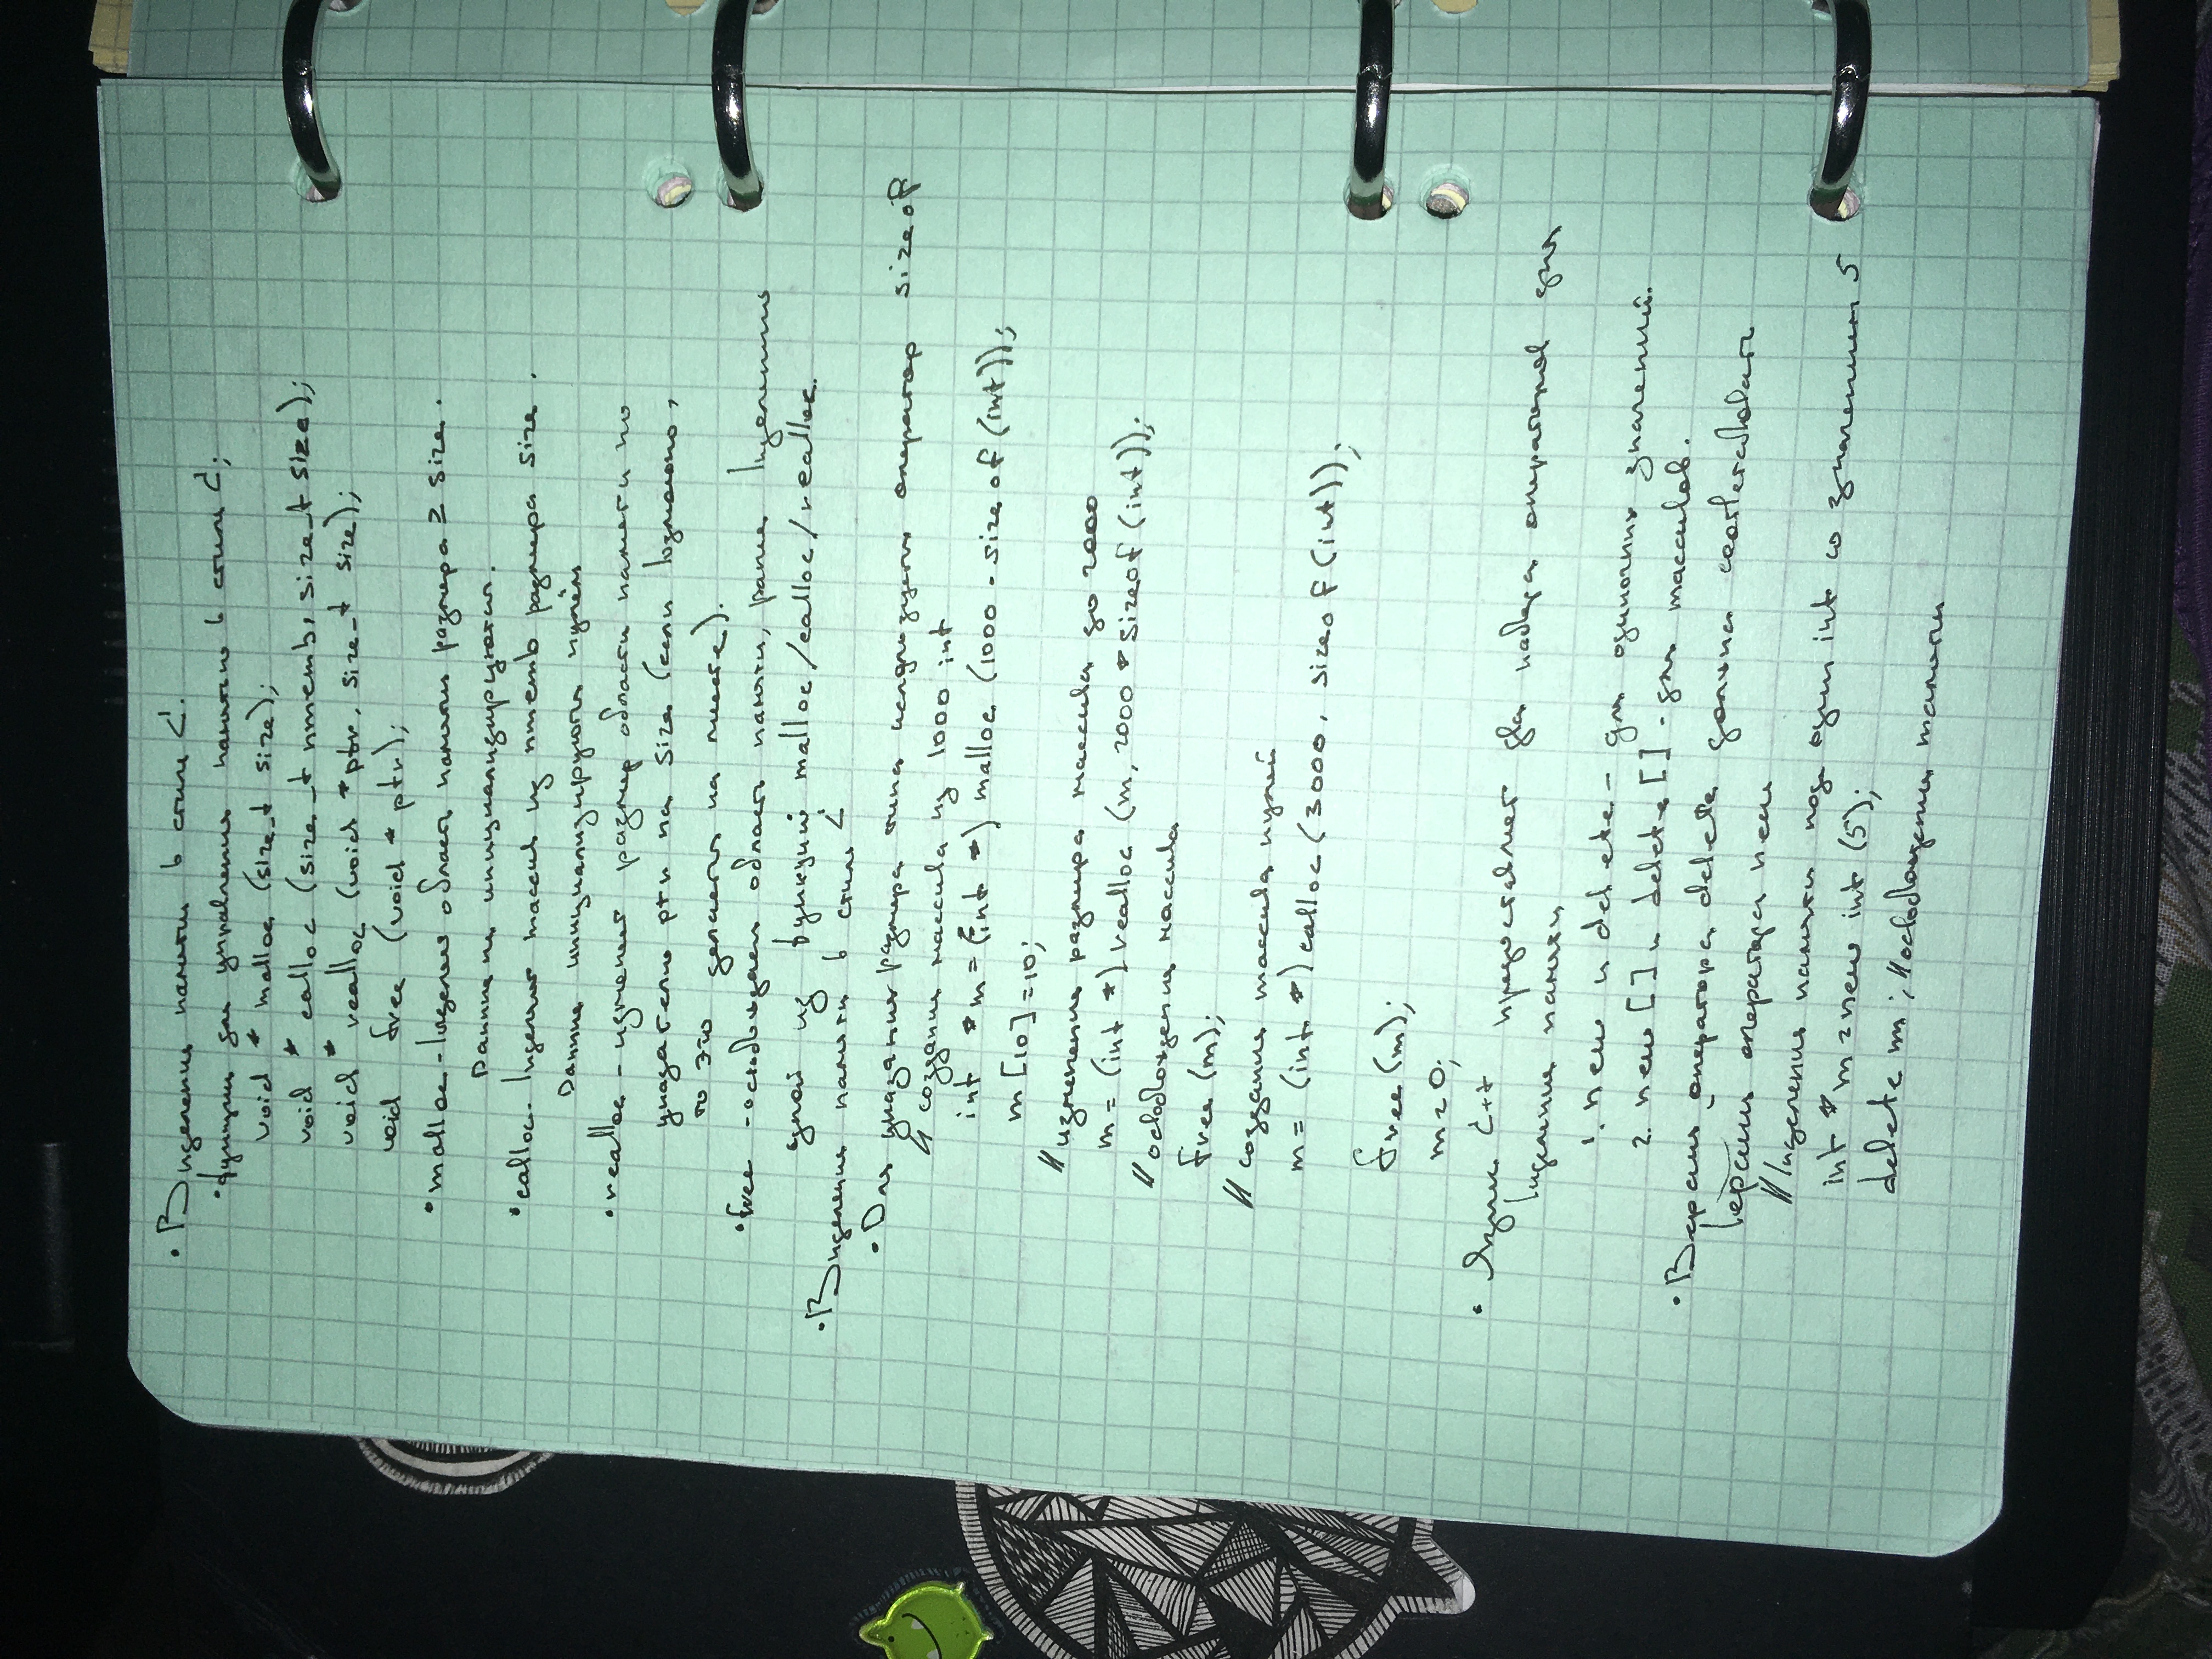 • Выделение памяти в стиле C.
• функции для управления памятью в стиле C;
void * malloc (size_t size);
void * calloc (size_t nmemb, size_t size);
void * realloc (void *ptr, size_t size);
void free (void * ptr);
• malloc - выделяет область памяти размера ≥ size.
Данные не инициализируются.
• calloc - выделяет массив из nmemb размера size.
Данные инициализируются нулём
• realloc - изменяет размер области памяти по
указателю ptr на size (если возможно,
то это делается на месте).
• free - освобождает область памяти, ранее выделенную
одной из функций malloc/calloc/realloc.
• Выделение памяти в стиле C
• Для указания размера типа используется оператор sizeof
// создание массива из 1000 int
int *m = (int *) malloc (1000 * sizeof (int));
m [10] = 10;
// изменение размера массива до 2000
m = (int *) realloc (m, 2000 * sizeof (int));
// освобождение массива
free (m);
// создание массива нулей
m = (int *) calloc (3000, sizeof (int));
free (m);
m = 0;
• Язык C++ предоставляет два набора операторов для
выделения памяти
1. new и delete - для одиночных значений.
2. new [] и delete [] - для массивов.
• Версия оператора delete должна соответствовать
версии оператора new
// Выделение памяти под один int со значением 5
int *m = new int (5);
delete m; // освобождение памяти